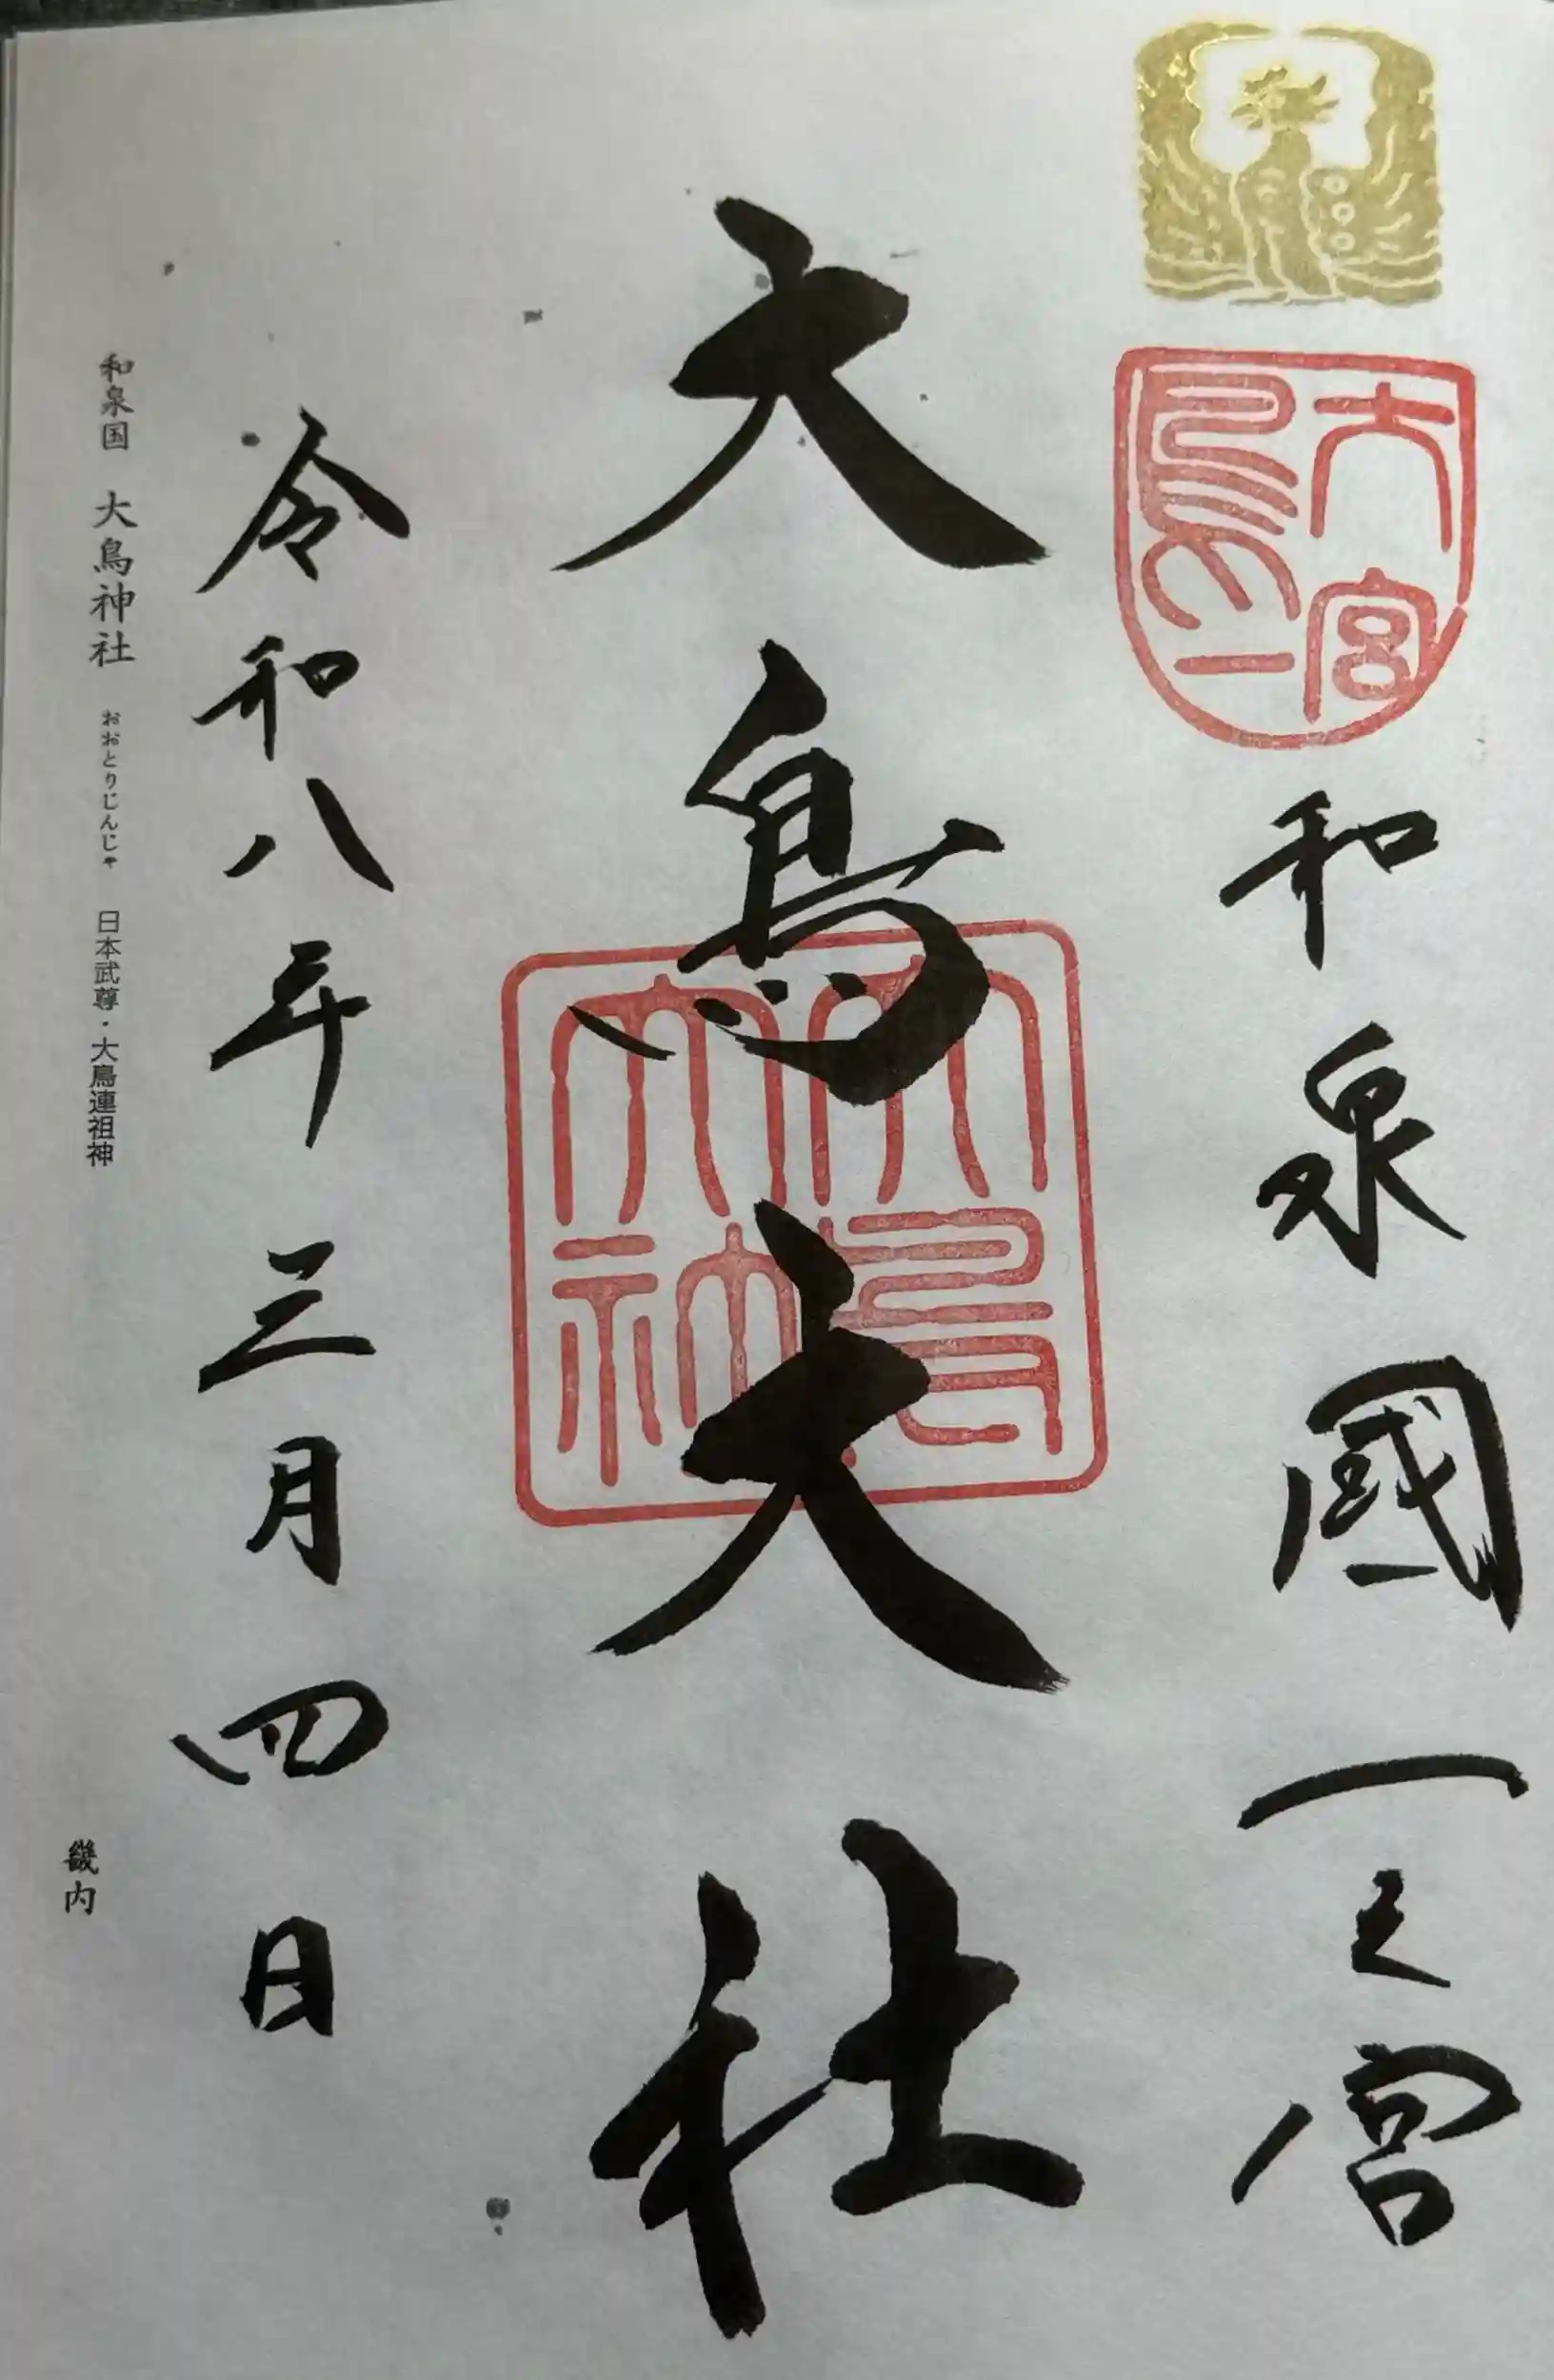 和泉國一之宮
大鳥大社
令和八年三月四日
和泉国 大鳥神社 おおとりじんじゃ 日本武尊・大鳥連祖神
畿内
大鳥一宮
大鳥大神